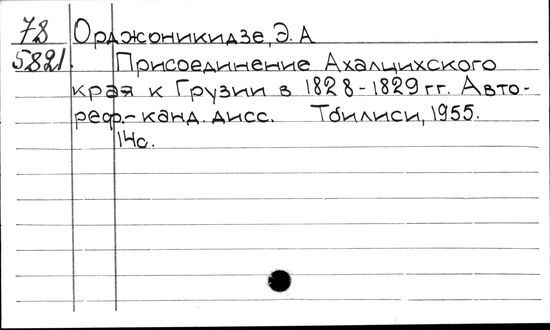 78 Орджоникидзе, Э. А
5821. Присоединение Ахалцихского
края к Грузии в 1828-1829 гг. Авто-
реф.- канд. дисс. Тбилиси, 1955.
14с.